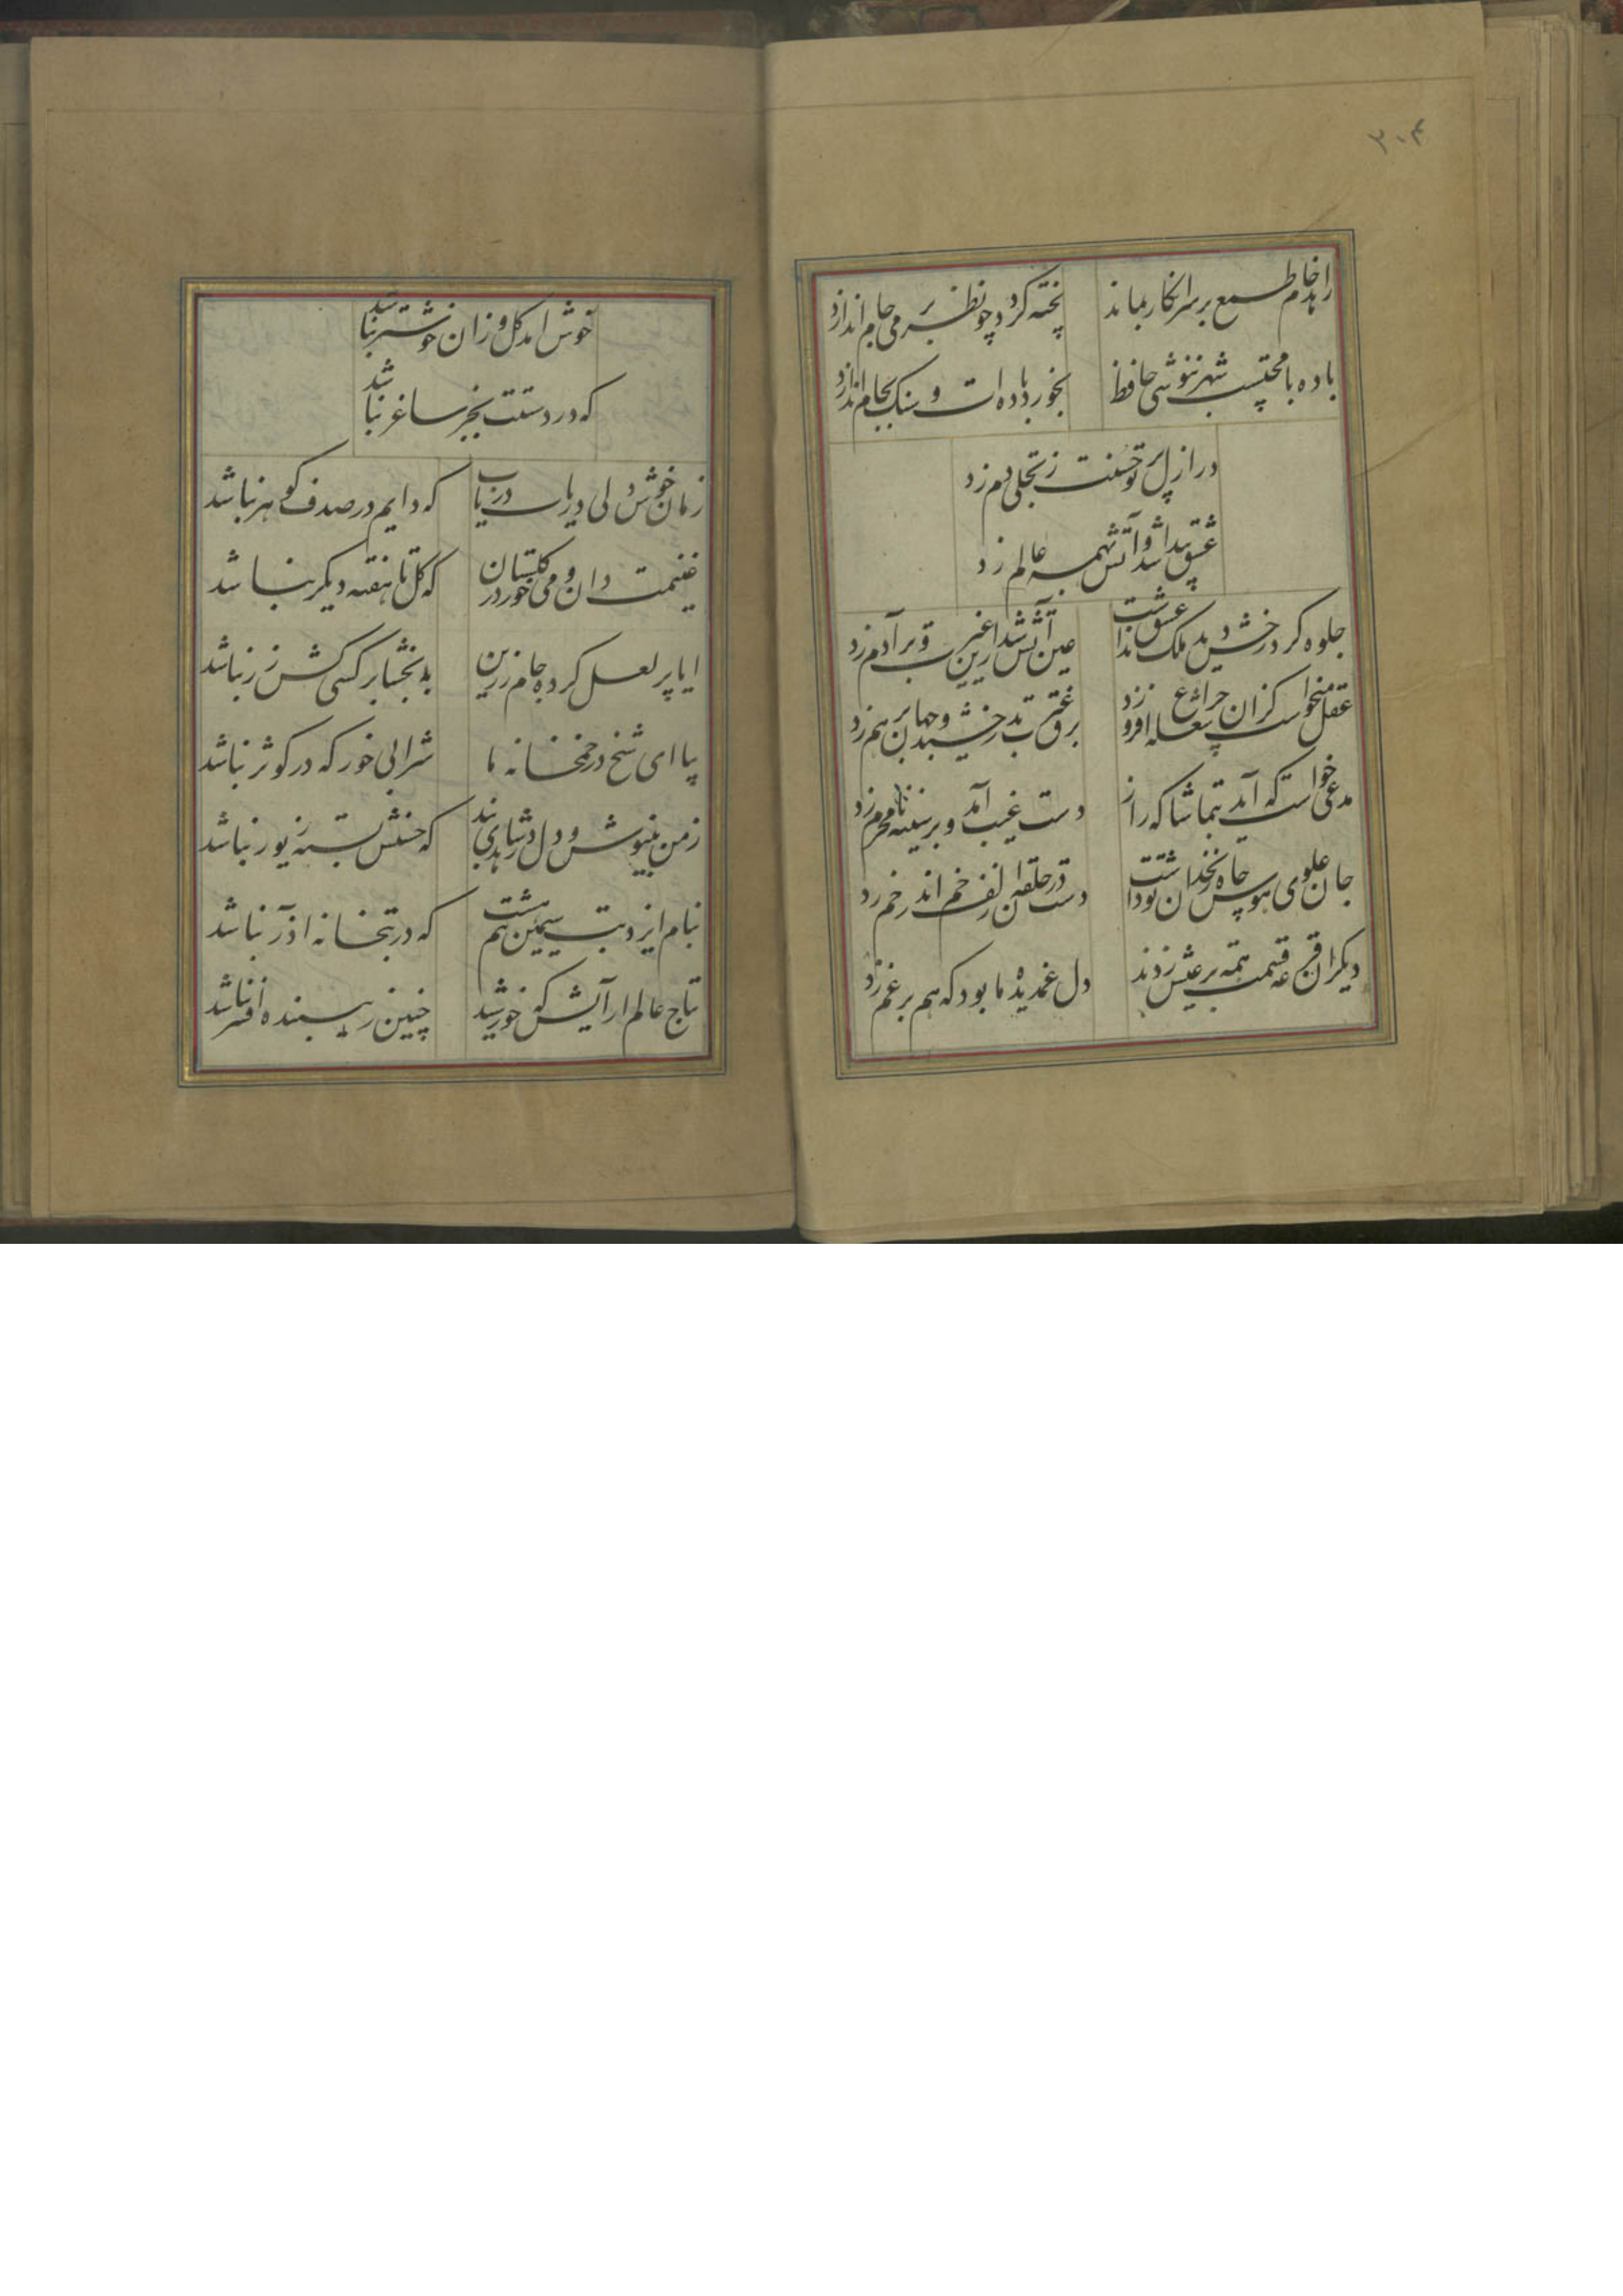 ۳۰۴
زاهد خام طمع بر سر انکار بماند
پخته کردد چو نظر بر می جام اندازد
باده با محتسب شهر ننوشی حافظ
بخورد باده ات و سنک بجام اندازد
در ازل پرتو حسنت ز تجلی دم زد
عشق پیدا شد و آتش بهمه عالم زد
جلوه کرد رخش دید ملک عشق نداشت
عین آتش شد ازین غیرت و بر آدم زد
عقل میخواست کزان شعله چراغ افروزد
برق غیرت بدرخشید و جهان بر هم زد
مدعی خواست که آید بتماشاکه راز
دست غیب آمد و بر سینه نامحرم زد
جان علوی هوس چاه زنخدان تو داشت
دست در حلقه آن زلف خم اندر خم زد
دیکران قرعه قسمت همه بر عیش زدند
دل غمدیده ما بود که هم بر غم زد
خوش امد کل وزان خوشتر نباشد
که در دستت بجز ساغر نباشد
زمان خوش دلی دریاب دریاب
که دایم در صدف کوهر نباشد
غنیمت دان و می خور در کلستان
که کل تا هفته دیکر نباشد
ایا پر لعل کرده جام زرین
ببخشا بر کسی کش زر نباشد
بیا ای شیخ در خمخانه ما
شرابی خور که در کوثر نباشد
ز من بنیوش و دل در شاهدی بند
که حسنش بسته زیور نباشد
بنام ایزد بت سیمین تنم هست
که در بتخانه اذر نباشد
تاج عالم ارایش که خورشید
چنین زیبنده افسر نباشد